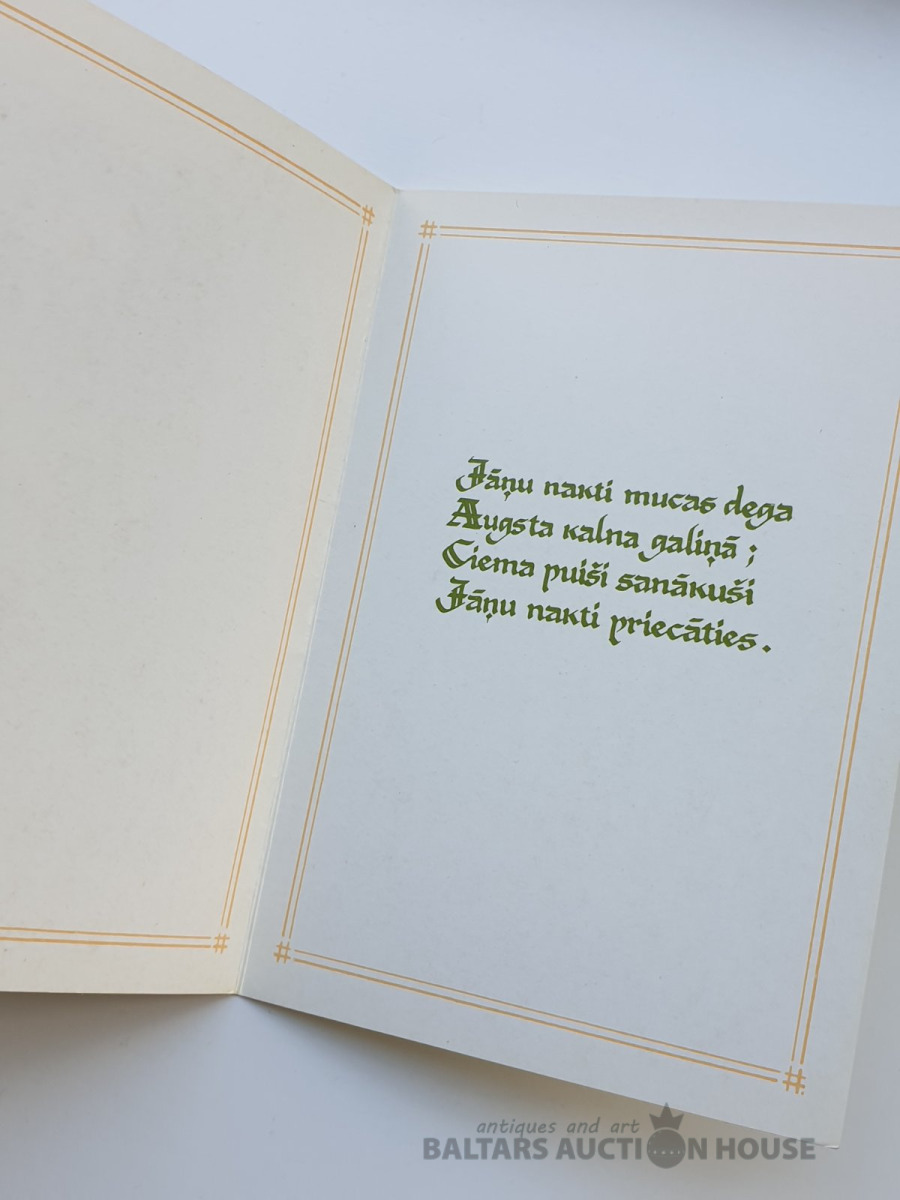 Jāņu nakti mucas dega
Augsta kalna galiņā ;
Ciema puiši sanākuši
Jāņu nakti priecāties .
antiques and art
BALTARS AUCTION HOUSE